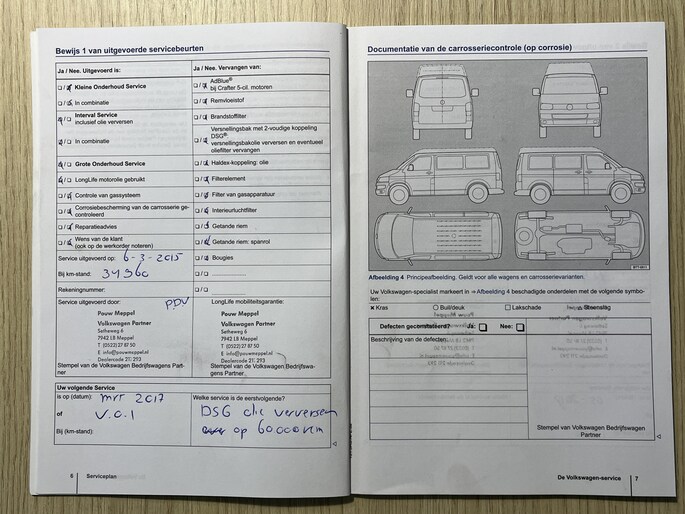 Bewijs 1 van uitgevoerde servicebeurten
Ja / Nee. Uitgevoerd is:
Ja / Nee. Vervangen van:
Kleine Onderhoud Service
In combinatie
Interval Service
inclusief olie verversen
In combinatie
Grote Onderhoud Service
LongLife motorolie gebruikt
Controle van gassysteem
Corrosiebescherming van de carrosserie ge-
controleerd
Reparatieadvies
Wens van de klant
(ook op de werkorder noteren)
AdBlue®
bij Crafter 5-cil. motoren
Remvloeistof
Brandstoffilter
Versnellingsbak met 2-voudige koppeling
DSG®:
versnellingsbakolie verversen en eventueel
oliefilter vervangen
Haldex-koppeling: olie
Filterelement
Filter van gasapparatuur
Interieurluchtfilter
Getande riem
Getande riem: spanrol
Bougies
Service uitgevoerd op: 6-3-2015
Bij km-stand: 34960
Rekeningnummer:
Service uitgevoerd door: PDV
Pouw Meppel
Volkswagen Partner
Setheweg 6
7942 LB Meppel
T (0522) 27 87 50
E info@pouwmeppel.nl
Dealercode 21, 293
Stempel van de Volkswagen Bedrijfswagens Part-
ner
LongLife mobiliteitsgarantie:
Pouw Meppel
Volkswagen Partner
Setheweg 6
7942 LB Meppel
T (0522) 27 87 50
E info@pouwmeppel.nl
Dealercode 21, 293
Stempel van de Volkswagen Bedrijfswa-
gens Partner
Uw volgende Service
is op (datum): mrt 2017
of V.O.1
Bij (km-stand):
Welke service is de eerstvolgende?
DSG olie verversen
op 60.000 km
6 Serviceplan
Documentatie van de carrosseriecontrole (op corrosie)
Afbeelding 4 Principeafbeelding. Geldt voor alle wagens en carrosserievarianten.
Uw Volkswagen-specialist markeert in ⇒ Afbeelding 4 beschadigde onderdelen met de volgende symbo-
len:
Kras
Buil/deuk
Lakschade
Steenslag
Defecten geconstateerd? Ja: Nee:
Beschrijving van de defecten:
Stempel van Volkswagen Bedrijfswagen
Partner
De Volkswagen-service 7